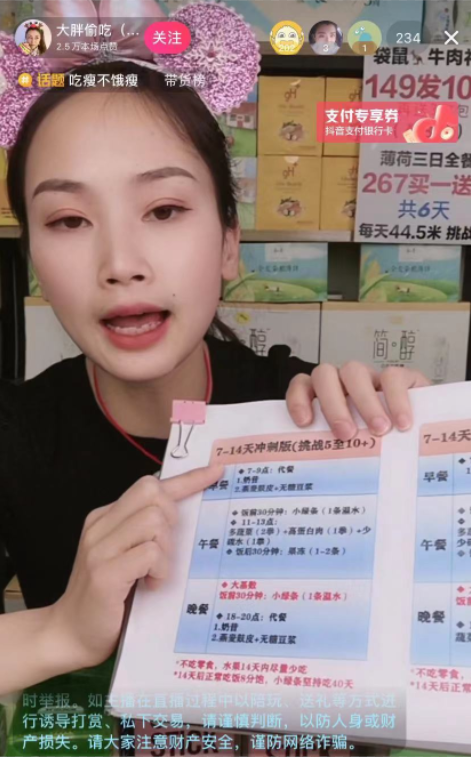 大胖偷吃（...
2.5万本场点赞
关注
3
1
234
话题 吃瘦不饿瘦
带货榜
支付专享券
抖音支付银行卡
袋鼠
牛肉
149发10
薄荷三日全餐
267买一送
共6天
每天44.5米 挑战
简·醇
7-14天冲刺版(挑战5至10+)
早餐
◆ 7-9点：代餐
1.奶昔
2.燕麦麸皮+无糖豆浆
午餐
◆ 饭前30分钟：小绿条（1条温水）
◆ 11-13点：
多蔬菜（2拳）+高蛋白肉（1拳）+少
碳水（1拳）
◆ 饭后30分钟：果冻（1-2条）
晚餐
◆ 大基数
饭前30分钟：小绿条（1条温水）
◆ 18-20点：代餐
1.奶昔
2.燕麦麸皮+无糖豆浆
*不吃零食，水果14天内尽量少吃
*14天后正常吃饭8分饱，小绿条坚持吃40天
7-14天
早餐
午餐
晚餐
*不吃零食
*14天后
时举报。如主播在直播过程中以陪玩、送礼等方式进
行诱导打赏、私下交易，请谨慎判断，以防人身或财
产损失。请大家注意财产安全，谨防网络诈骗。